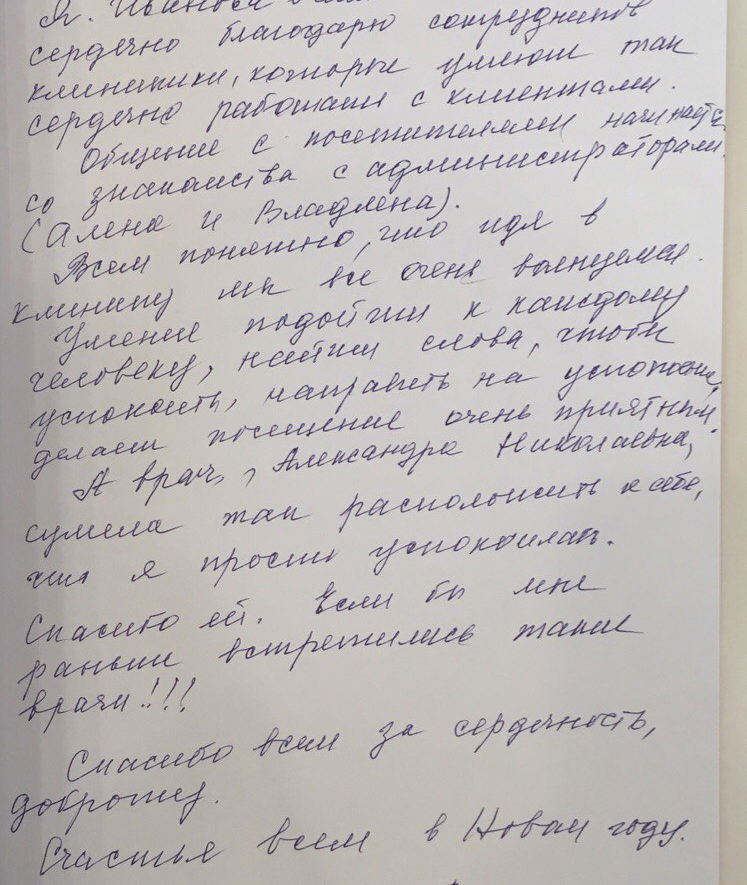 Я, Иванова
сердечно благодарю сотрудников
клиники, которые умеют так
сердечно работать с клиентами.
Общение с посетителями начинается
со знакомства с администраторами
(Алена и Владлена).
Всем понятно, что идя в
клинику мы все очень волнуемся.
Умение подойти к каждому
человеку, найти слова, чтобы
успокоить, направить на успокоение,
делает посещение очень приятным.
А врач, Александра Николаевна,
сумела так расположить к себе,
что я просто успокоилась.
Спасибо ей. Если бы мне
раньше встретились такие
врачи!!!
Спасибо всем за сердечность,
доброту.
Счастья всем в Новом году.